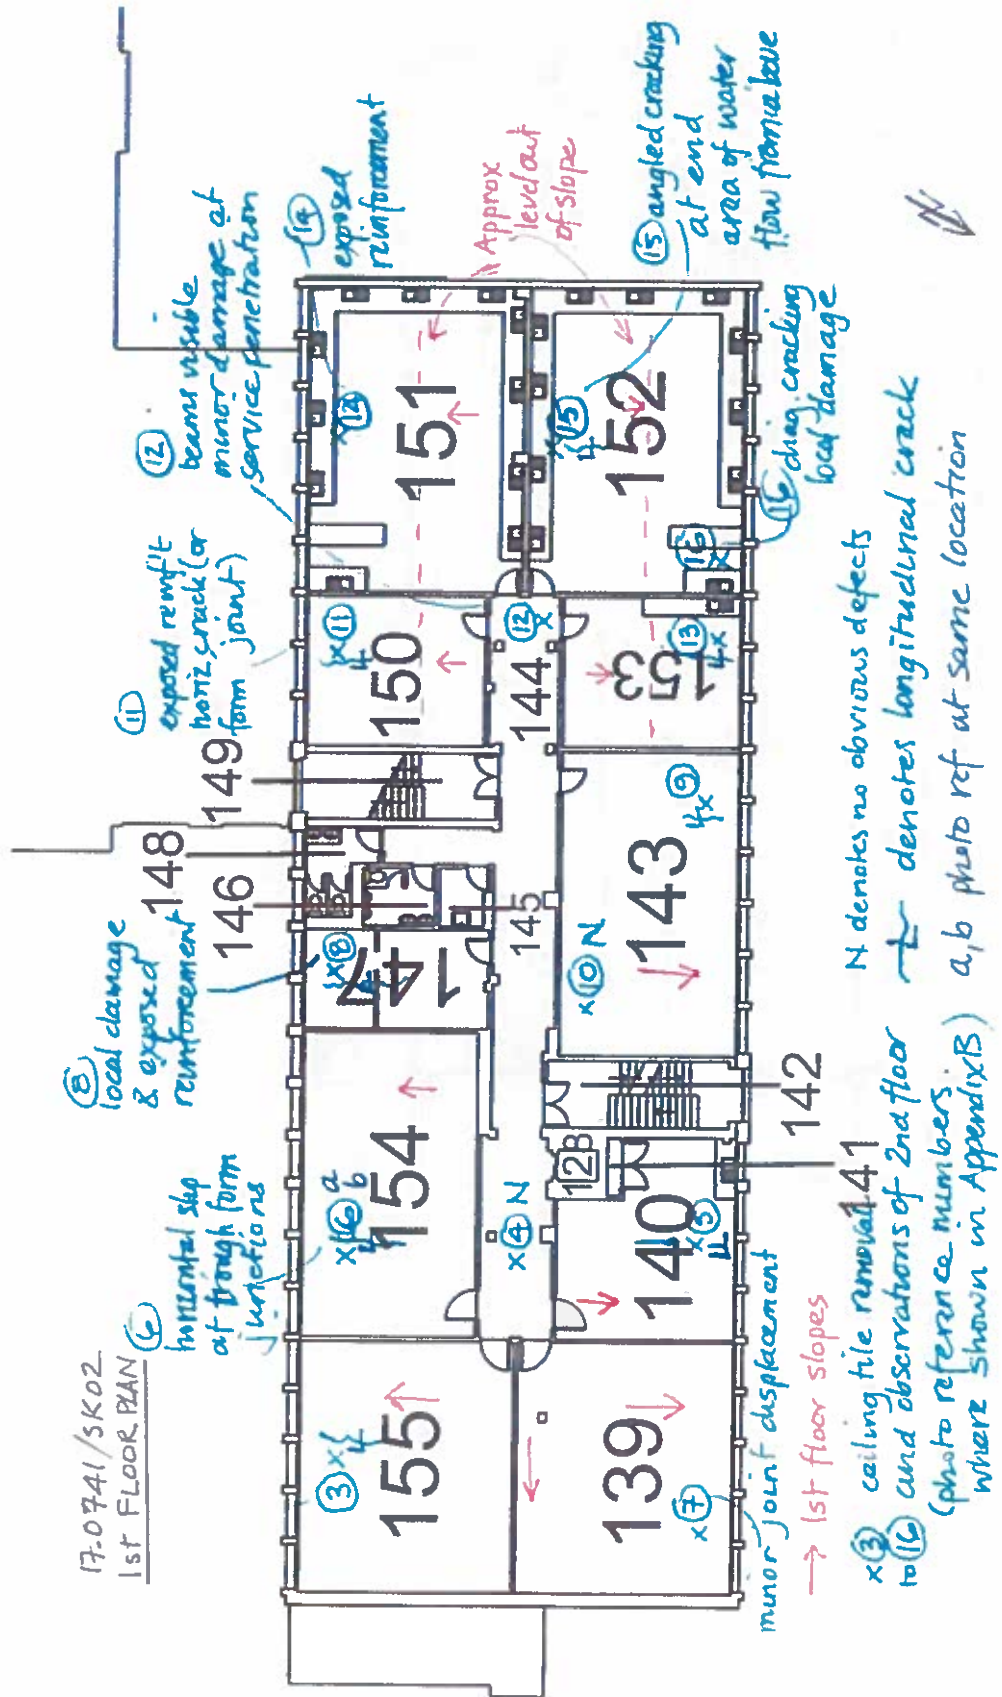 17.0741/SK02
1st FLOOR PLAN
6
horizontal slip
at trough form
junctions
8
local damage
& exposed
reinforcement
11
exposed reinf't
horiz. crack (or
form joint)
12
beams visible
minor damage at
service penetration
14
exposed
reinforcement
Approx
level out
of slope
15 angled cracking
at end
area of water
flow from above
16 diag. cracking
local damage
148
146
149
155
3 x
154
x 6 a
b
147
x 8
150
x 11
151
x 14
x 4 N
145
144
12
x
139
x 7
140
x 5
12B
141
142
143
x 10 N
x 9
153
13
x
152
x
15
16
x
minor joint displacement
→ 1st floor slopes
x 3
to 16
ceiling tile removal
and observations of 2nd floor
(photo reference numbers
where shown in Appendix B)
N denotes no obvious defects
denotes longitudinal crack
a, b photo ref at same location